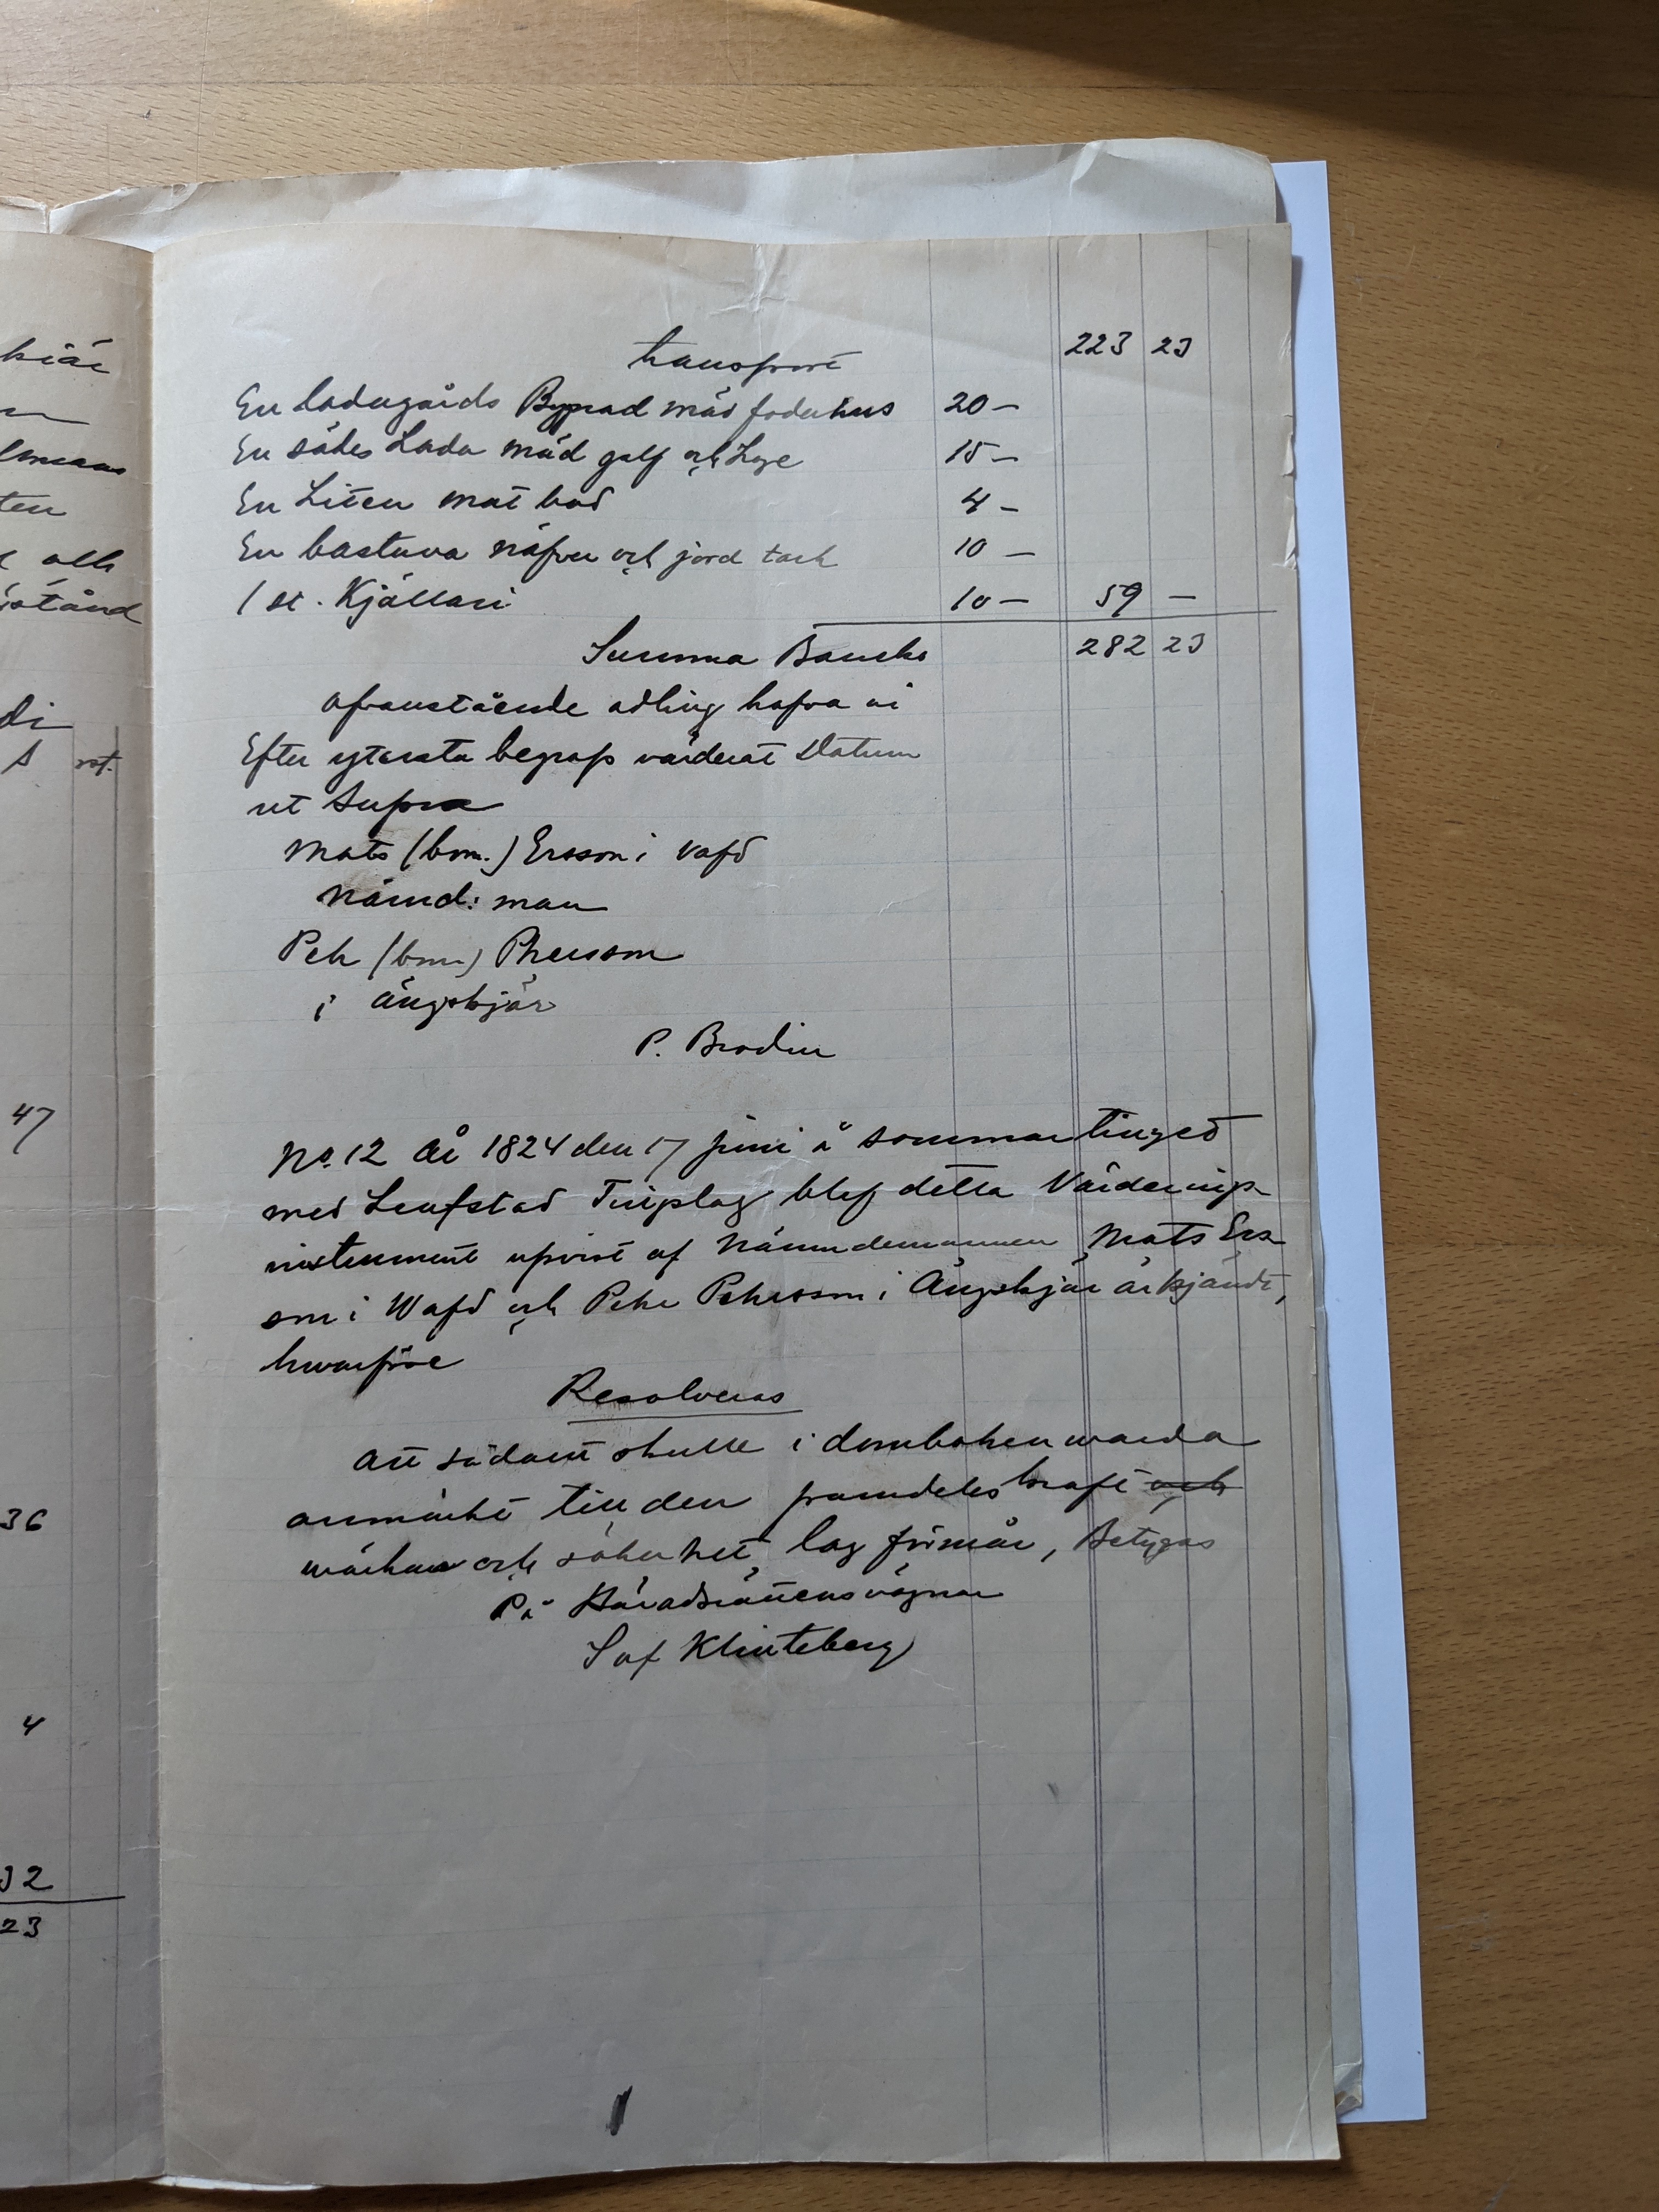 kiär
ten
alla
istånd
rst.
47
36
4
32
23
transport 223 23
En Ladugårds Bygnad mäd foderhus 20 –
En südes Lada mäd golf och Loge 15 –
En Liten mat bod 4 –
En bastuva näfver och jord tack 10 –
1 st. Kjällari 10 – 59 –
Summa Bancko 282 23
ofvanstående adling hafva vi
Efter ytersta begrep värderat Datum
ut Supra
Mats (bm.) Ersson i Vafd
Nämd: man
Pehr (bm) Phersson
i Ängskjär
P. Brodin
No. 12 År 1824 den 17 juni å sommartinget
med Leufstad Tingslag blef detta Värderings-
instrument upvist af Nämndemannen Mats Ers-
son i Wafd och Pehr Pehrsson i Ängskjär ärkjändt,
hwarföre
Resolveras
Att sådant skulle i domboken warda
anmärkt till den framdeles kraft och
wärkan och säkerhet lag förmår, Betygas
På Häradsrättens vägnar
S af Klinteberg